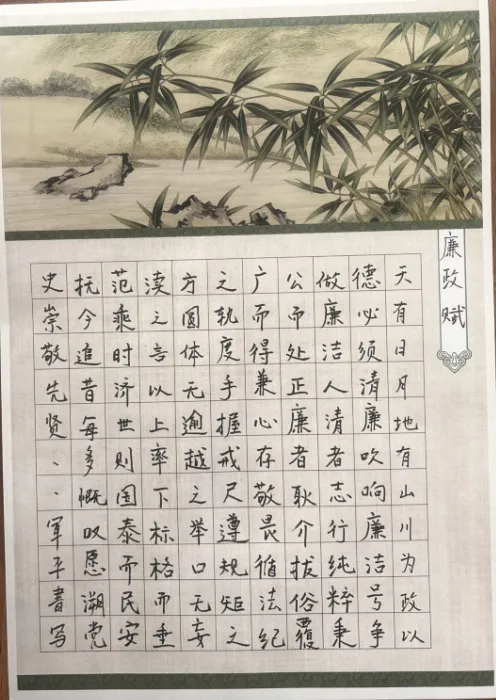 廉政赋
天有日月地有山川为政以
德必须清廉吹响廉洁号争
做廉洁人清者志行纯粹秉
公而处正廉者耿介拔俗覆
广而得兼心存敬畏循法纪
之轨度手握戒尺遵规矩之
方圆体无逾越之举口无妄
渎之言以上率下标格而垂
范乘时济世则国泰而民安
抚今追昔每多慨叹愿溯党
史崇敬先贤、、军平书写